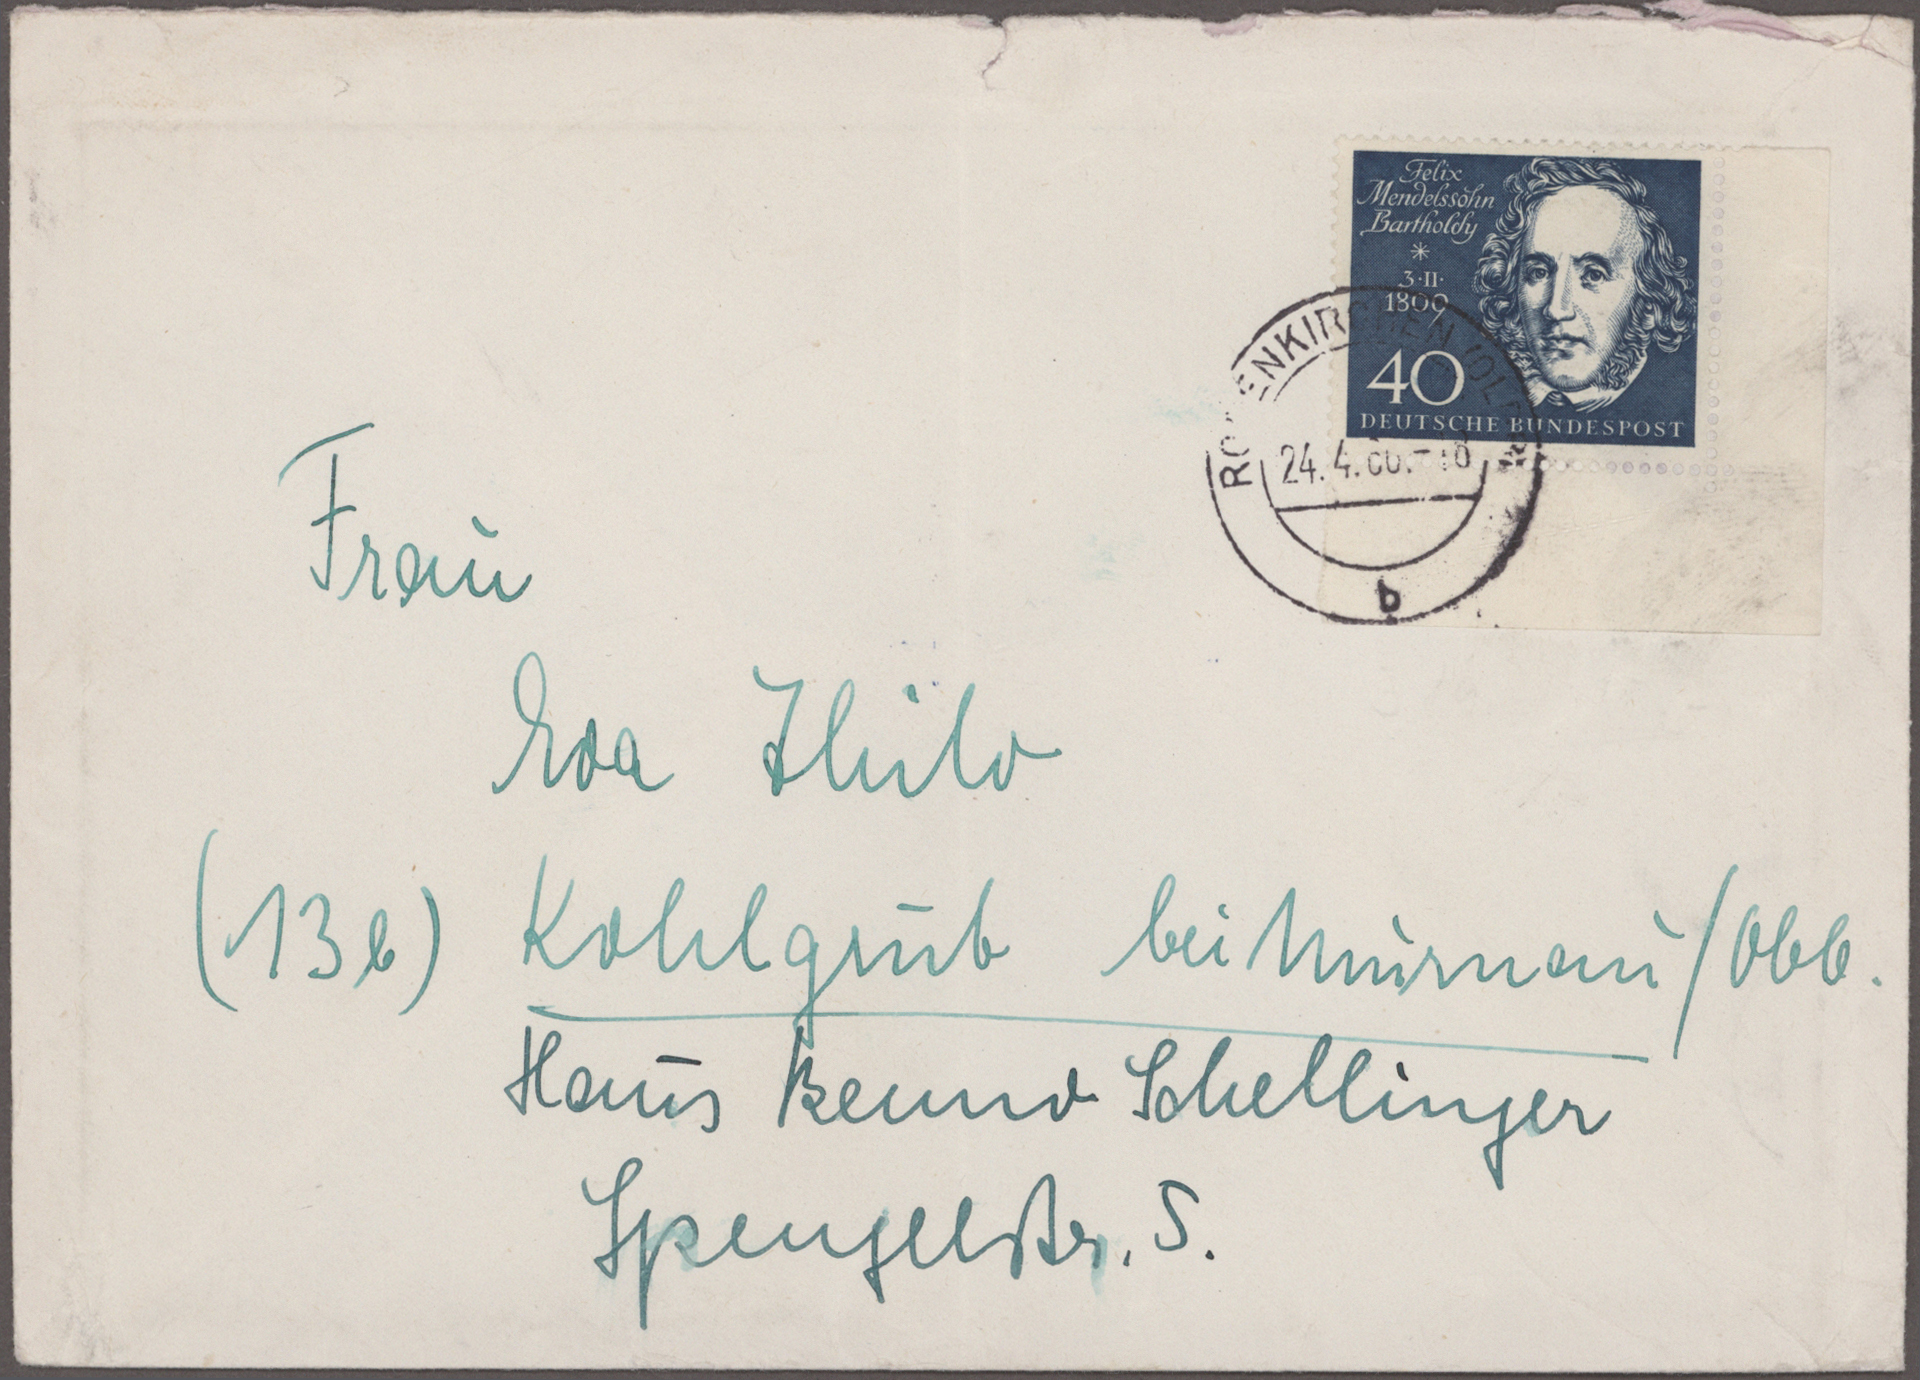 Felix
Mendelssohn
Bartholdy
*
3·II·
1809
40
DEUTSCHE BUNDESPOST
24.4.60.-18
b
Frau
Eva Thilo
(13b) Kohlgrub bei Murnau/Obb.
Haus Benno Schellinger
Spengelstr. 5.